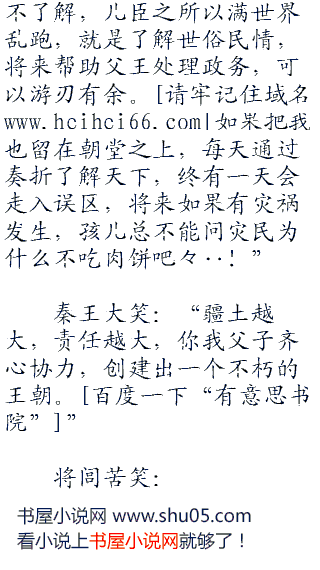 不了解，儿臣之所以满世界
乱跑，就是了解世俗民情，
将来帮助父王处理政务，可
以游刃有余。[请牢记住域名
www.hcihci66.com|如果把我
也留在朝堂之上，每天通过
奏折了解天下，终有一天会
走入误区，将来如果有灾祸
发生，孩儿总不能问灾民为
什么不吃肉饼吧々‥！”
秦王大笑：“疆土越
大，责任越大，你我父子齐
心协力，创建出一个不朽的
王朝。[百度一下“有意思书
院”]”
将闾苦笑：
书屋小说网 www.shu05.com
看小说上书屋小说网就够了！